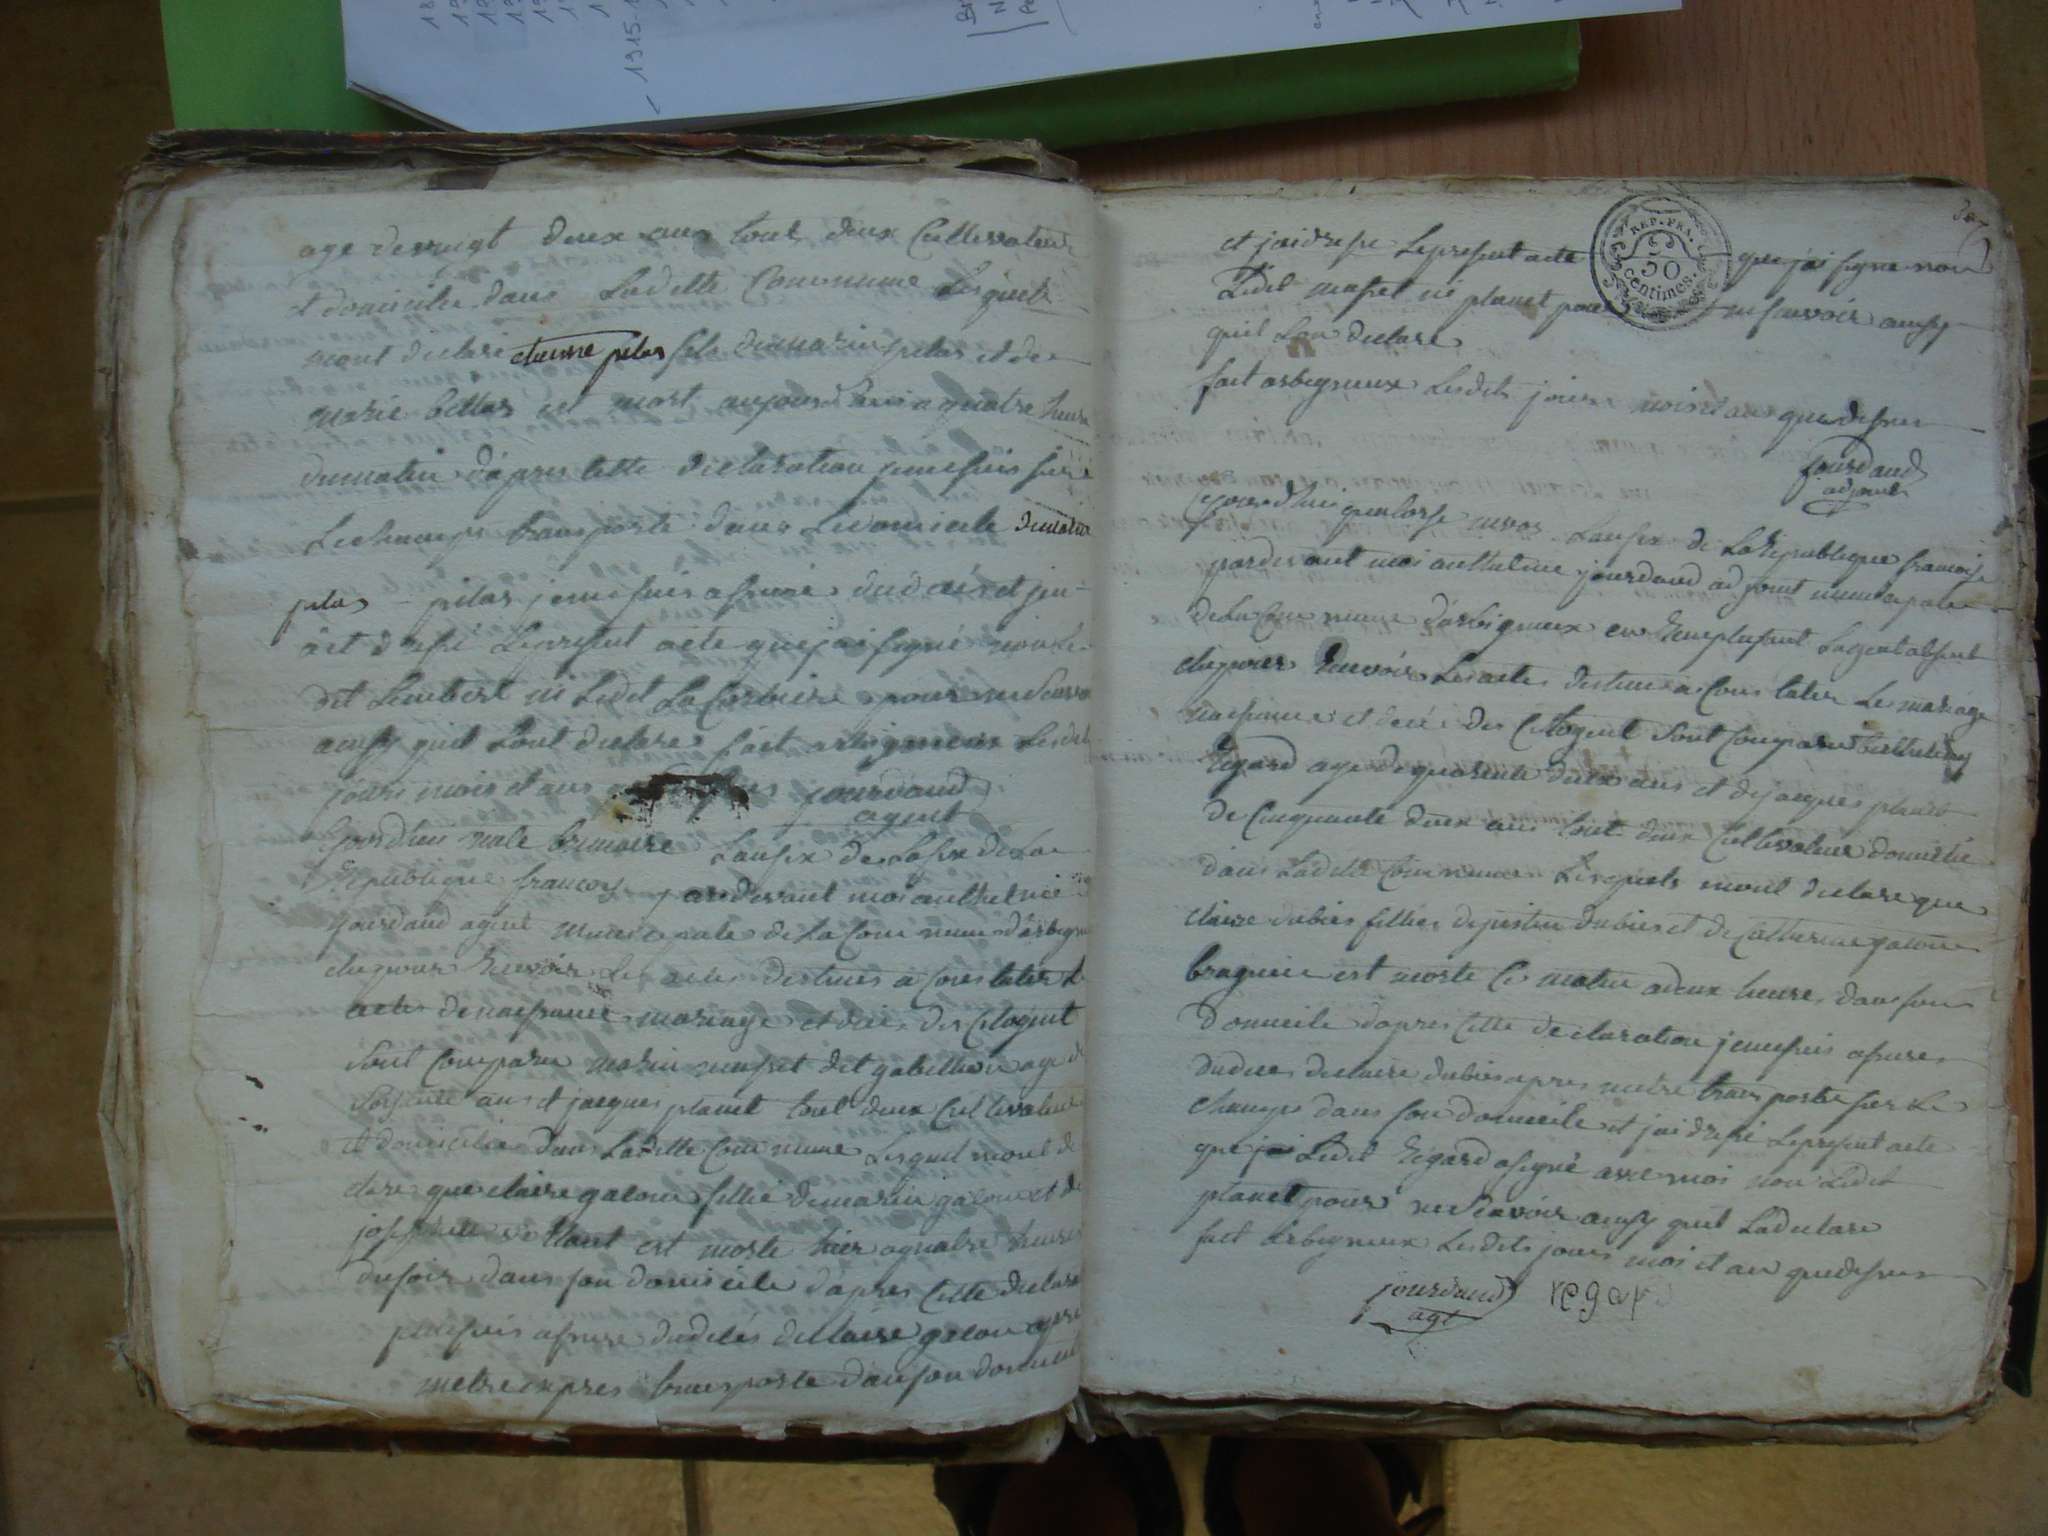 1915-1
age de vingt deux ans tout deux Cultivateur
et domicilie dans Ladette Commune Lesquels
mont declare etienne pilas fils de marin pilas et de
marie bellas est mort aujourdhuis a quatre heure
du matin d'apres cette declaration jeme suis sur
Lechamps transporte dans Ledomicile
pilas pilas jeme suis asuré du décés et jen
ait dresé Lepresent acte que jai signé non Le
dit Lambert ni Ledit pour ne Savoir
ausy quil Lont declare fait arbigneux Lesdits
jours mois et ans jourdand
agent
Cejourdhui brumaire Lansix de La
Republique francoise pardevant moi anthelme
jourdand agent municipale de La Commune d'arbigneux
chargé pour Recevoir Les actes destines a Constater
actes de naissance mariage et déces des Citoyens
Sont Comparu marin masset dit age de
Soixante ans et jacques planet tout deux Cultivateur
et domicilie dans Ladette Commune Lesquel mont de
clare que claire galon fillie de marin galon et de
josephte est morte hier a quatre heures
du soir dans son domicile dapres Cette declara
je me suis asure du déces de claire galon apres
metre expres transporte dans son domicile
387
REP. FRA.
50
centimes.
et jai dressé Lepresent acte que jai signe non
Ledit masset ni planet pour ne savoir ausy
quil Lon declare
fait arbigneux Lesdits jours mois et ans que desus
jourdand
adjoint
Cejourdhui quatorse nivos Lansix de La Republique francoise
pardevant moi anthelme jourdand adjoint municipale
de La Commune d'arbigneux en Remplasant Lagent absent
chargé pour Recevoir Les actes destines a Constater Les mariage
naissance et decés des Citoyens Sont Comparu barthelemy
Regard age de quarente deux ans et de jacques planet
de Cinquante deux ans tout deux Cultivateur domicilie
dans Ladette Commune Lesquels mont declare que
claire dubies fillie de justin dubies et de Catherine galon
braguie est morte Ce matin a deux heures dans son
domicile dapres Cette declaration jeme suis asure
du deces declaire dubies apres metre transporte sur Le
champs dans son domicile et jai dresé Lepresent acte
que jai Ledit Regard a signé avec moi non Ledit
planet pour ne Savoir ausy quil La declare
fait Arbigneux Lesdits jours mois et an que desus
jourdand regar
agt